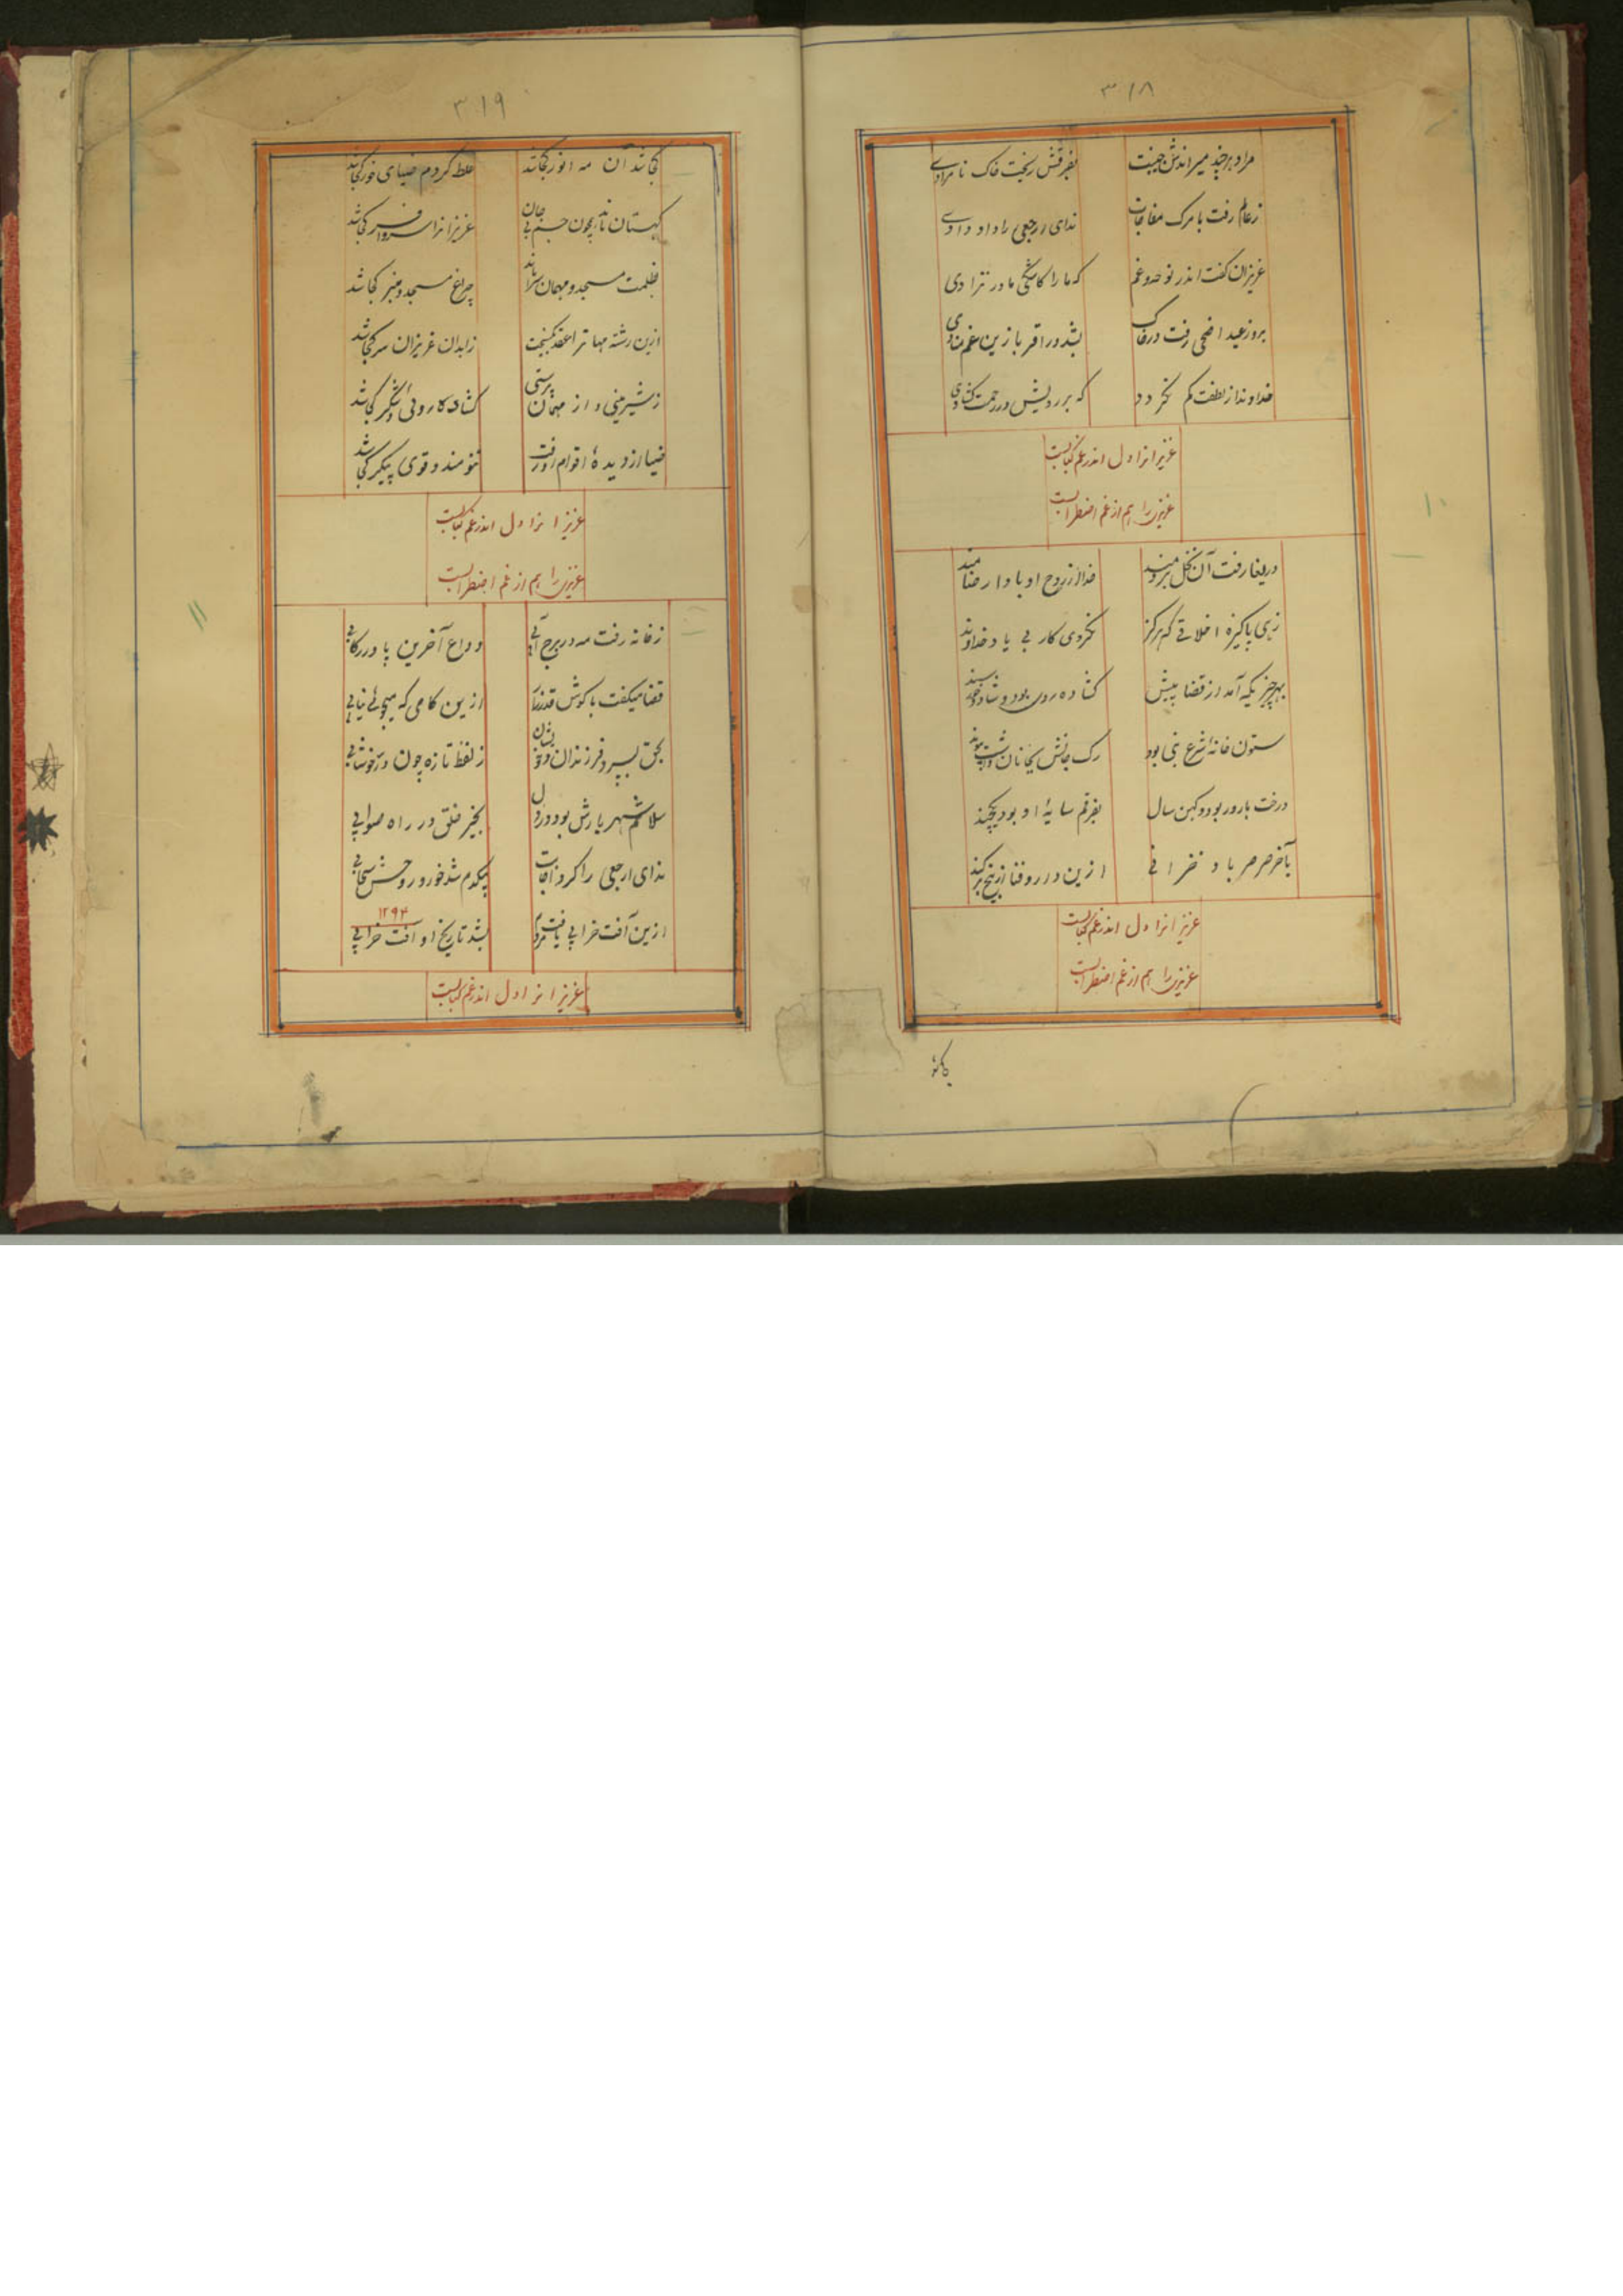 ۳۱۸
مراد هر چند میراندش جنیت بفرقش ریخت خاک نامرادی
ز عالم رفت با مرک مفاجات ندای ارجعی را داد دادی
عزیزان گفت اندر نوحه و غم که ما را کاشکی مادر نزادی
بروز عید اضحی رفت در خاک بشد در اقربا زین غم منادی
خداوندا ز لطفت کم نکردد که بر رویش در رحمت کشادی
عزیزانرا دل اندر غم کبابست
عزیزی را هم از غم اضطرابست
۱۰
دریغا رفت آن نخل برومند خدا از روح او بادا رضامند
زهی پاکیزه اخلاقی که هرکز نکردی کار بی یاد خداوند
بهر چیزیکه آمد از قضا پیش کشاده روی بود و شاد و خرسند
ستون خانهٔ شرع نبی بود رک جانش بجانان داشت پیوند
درخت بارور بود و کهن سال بفرقم سایهٔ او بود یکچند
بآخر صرصر باد خزانی ازین دار و فنا از بیخ برکند
عزیزانرا دل اندر غم کبابست
عزیزی را هم از غم اضطرابست
۳۱۹
کجا شد آن مه انور کجا شد غلط کردم ضیای خور کجا شد
کهستان ماند چون جسم بی جان عزیزانرا سر و افسر کجا شد
بظلمت مسجد و مهمان سرا ماند چراغ مسجد و منبر کجا شد
ازین رشته مهاتر اعقد بکسیخت ز ابدان عزیزان سر کجا شد
ز شیرینی و از مهمان پرستی کشاده روئی و شکر کجا شد
ضیا از دیدهٔ اقوام او رفت تنومند و قوی پیکر کجا شد
عزیزانرا دل اندر غم کبابست
عزیزی را هم از غم اضطرابست
۱۱
ز خانه رفت مه در برج آبی وداع آخرین پا در رکابی
قضا میکفت با کوش قدر ازین کامی که میجوئی نیابی
بحق بسپرد فرزندان ز لفظ تازه چون در خوشابی
سلاشم شهر یارش بود بخیر خلق در راه صوابی
ندای ارجعی را کرد اجابت بیکدم شد خور و روحش سحابی
ازین آفت خرابی یافت مردم بشد تاریخ او آفت خرابی
۱۲۹۴
عزیزانرا دل اندر غم کبابست